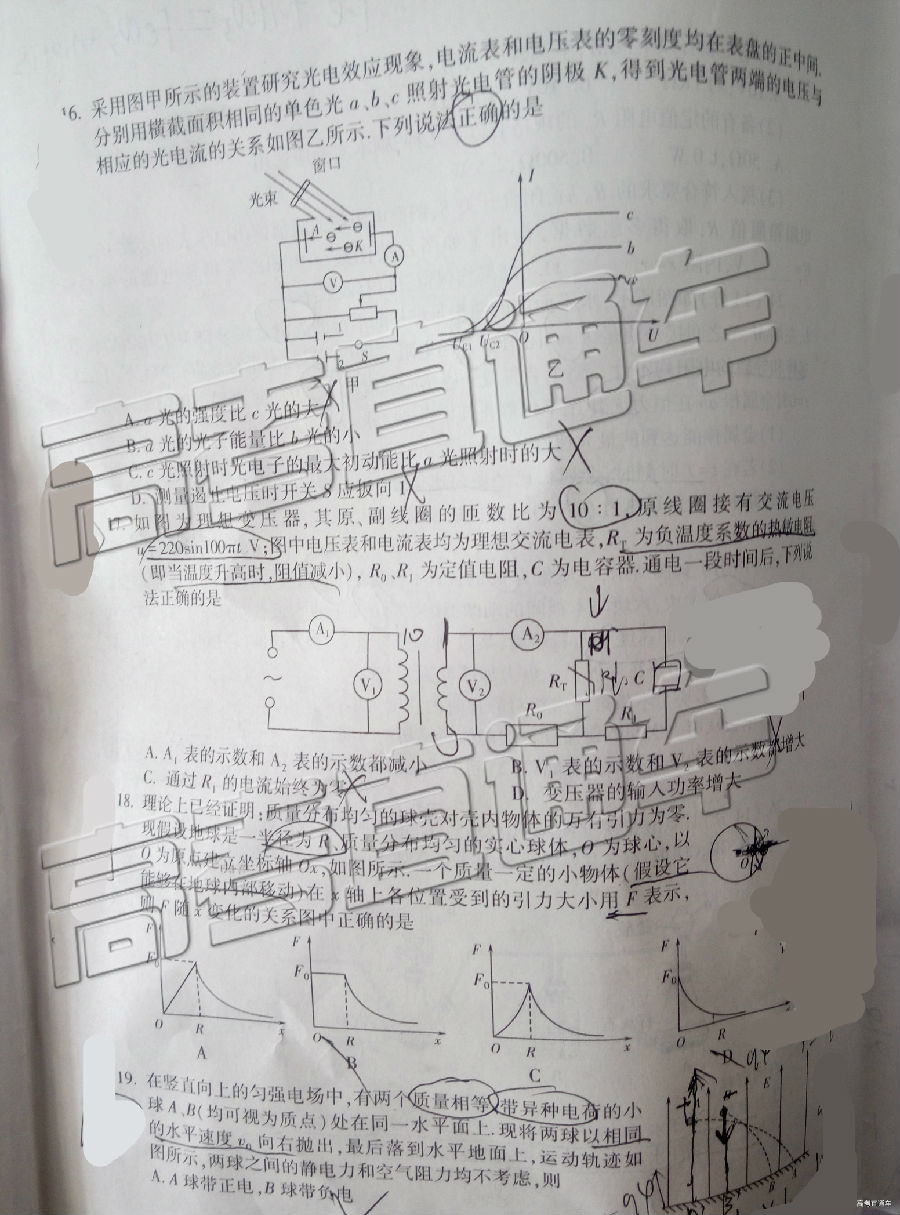 16. 采用图甲所示的装置研究光电效应现象,电流表和电压表的零刻度均在表盘的正中间.
分别用横截面积相同的单色光 a、b、c 照射光电管的阴极 K,得到光电管两端的电压与
相应的光电流的关系如图乙所示.下列说法正确的是
窗口
光束
A
K
A
V
1
2
S
甲
I
c
b
a
UC1
UC2
O
U
乙
A. a 光的强度比 c 光的大
B. a 光的光子能量比 b 光的小
C. c 光照射时光电子的最大初动能比 a 光照射时的大
D. 测量遏止电压时开关 S 应扳向 1
17. 如图为理想变压器,其原、副线圈的匝数比为 10∶1,原线圈接有交流电压
u=220sin100πt V;图中电压表和电流表均为理想交流电表,RT 为负温度系数的热敏电阻
(即当温度升高时,阻值减小),R0、R1 为定值电阻,C 为电容器.通电一段时间后,下列说
法正确的是
A1
10
1
A2
V1
V2
RT
C
R0
R1
A. A1 表的示数和 A2 表的示数都减小
B. V1 表的示数和 V2 表的示数都增大
C. 通过 R1 的电流始终为零
D. 变压器的输入功率增大
18. 理论上已经证明:质量分布均匀的球壳对壳内物体的万有引力为零.
现假设地球是一半径为 R、质量分布均匀的实心球体,O 为球心,以
O 为原点建立坐标轴 Ox,如图所示.一个质量一定的小物体(假设它
能够在地球内部移动)在 x 轴上各位置受到的引力大小用 F 表示,
则 F 随 x 变化的关系图中正确的是
F
F0
O
R
x
A
F
F0
O
R
x
B
F
F0
O
R
x
C
F
F0
O
R
x
D
19. 在竖直向上的匀强电场中,有两个质量相等、带异种电荷的小
球 A、B(均可视为质点)处在同一水平面上.现将两球以相同
的水平速度 v0 向右抛出,最后落到水平地面上,运动轨迹如
图所示,两球之间的静电力和空气阻力均不考虑,则
E
A. A 球带正电,B 球带负电
高考直通车
高考直通车
高考直通车